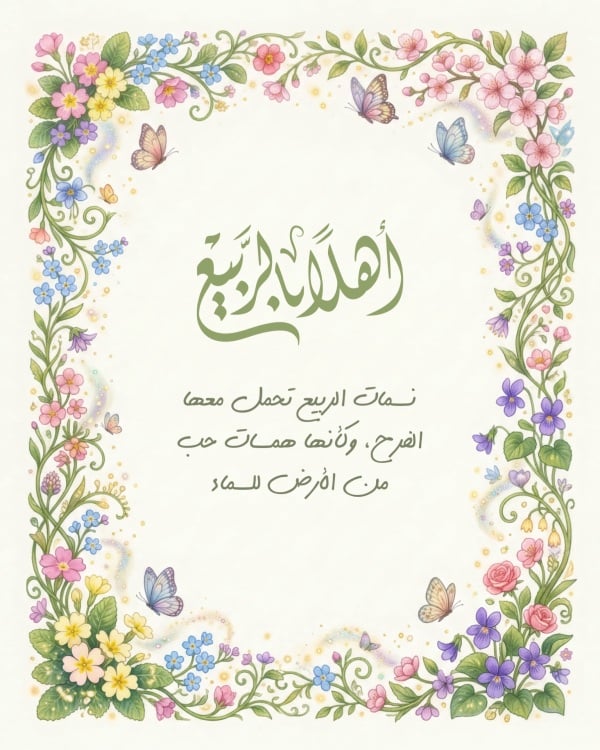 أهلًا بالرَّبيع
نسمات الربيع تحمل معها
الفرح، وكأنها همسات حب
من الأرض للسماء